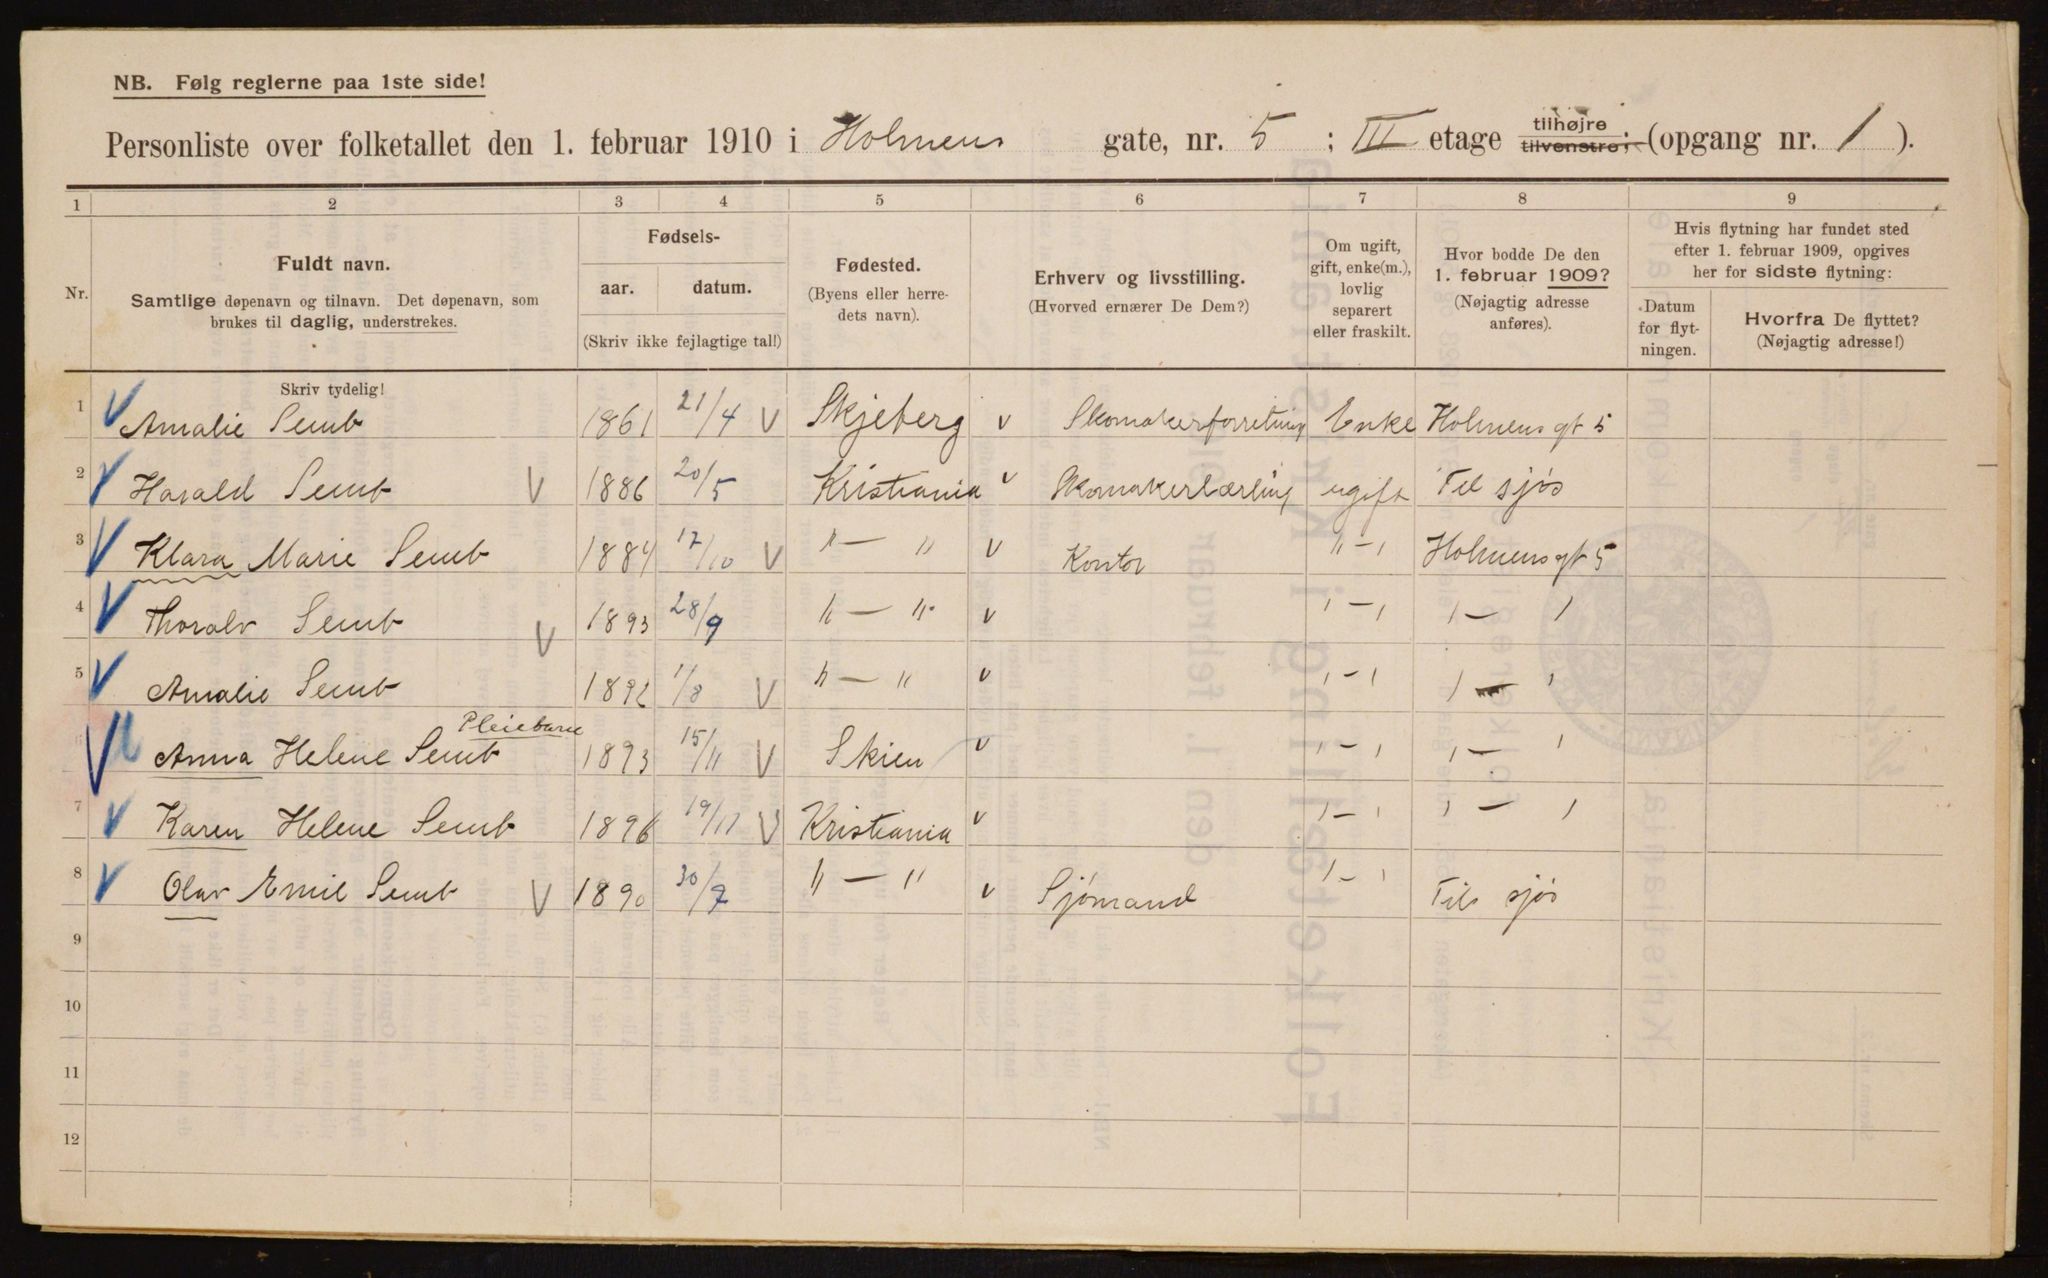 NB. Følg reglerne paa 1ste side!
Personliste over folketallet den 1. februar 1910 i Holmens gate, nr. 5 ; III etage tilhøjre tilvenstre; (opgang nr. 1 ).
1 2 3 4 5 6 7 8 9
Nr.
Fuldt navn.
Samtlige døpenavn og tilnavn. Det døpenavn, som
brukes til daglig, understrekes.
Fødsels-
aar. datum.
(Skriv ikke fejlagtige tal!)
Fødested.
(Byens eller herre-
dets navn).
Erhverv og livsstilling.
(Hvorved ernærer De Dem?)
Om ugift,
gift, enke(m.),
lovlig
separert
eller fraskilt.
Hvor bodde De den
1. februar 1909?
(Nøjagtig adresse
anføres).
Hvis flytning har fundet sted
efter 1. februar 1909, opgives
her for sidste flytning:
Datum
for flyt-
ningen.
Hvorfra De flyttet?
(Nøjagtig adresse!)
Skriv tydelig!
1 Amalie Semb 1861 21/4 Skjeberg Skomakerforretning Enke Holmens gt 5
2 Harald Semb 1886 20/5 Kristiania Skomakerlærling ugift Til sjøs
3 Klara Marie Semb 1884 17/10 " — " Kontor " — " Holmens gt 5
4 Thoralv Semb 1893 28/9 " — " " — " " — "
5 Amalie Semb 1892 1/8 " — " " — " " — "
Pleiebarn
6 Anna Helene Semb 1893 15/11 Skien " — " " — "
7 Karen Helene Semb 1896 19/11 Kristiania " — " " — "
8 Olav Emil Semb 1890 30/7 " — " Sjømand " — " Tils sjøs
9
10
11
12